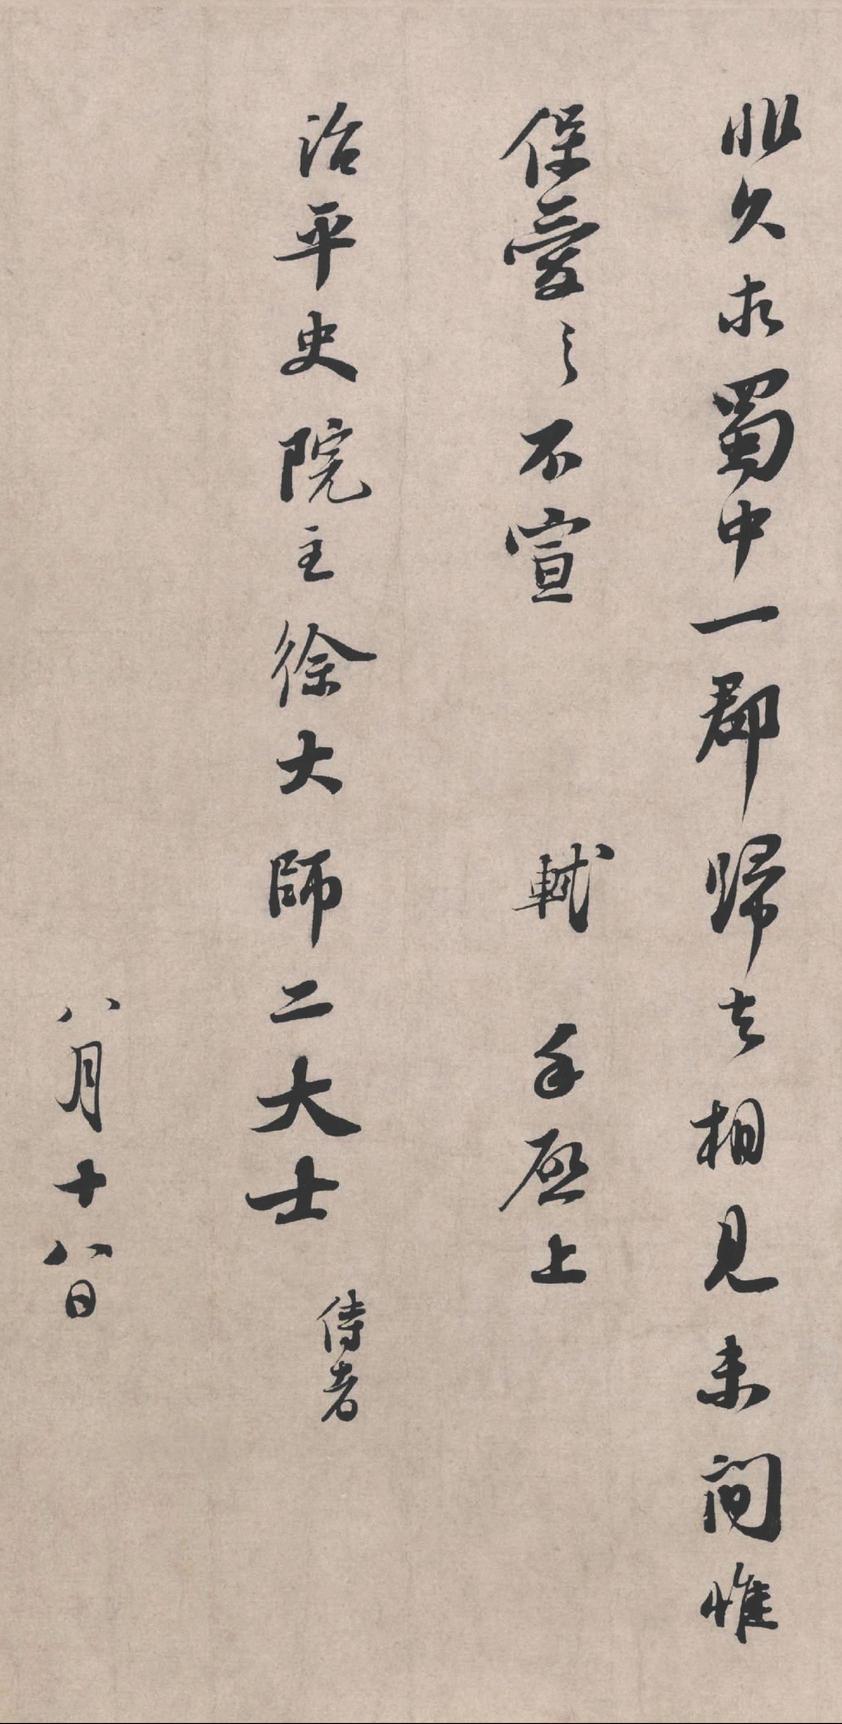 非久求蜀中一郡歸去相見未間惟
保愛之不宣 軾 手啟上
治平史院主徐大師二大士 侍者
八月十八日